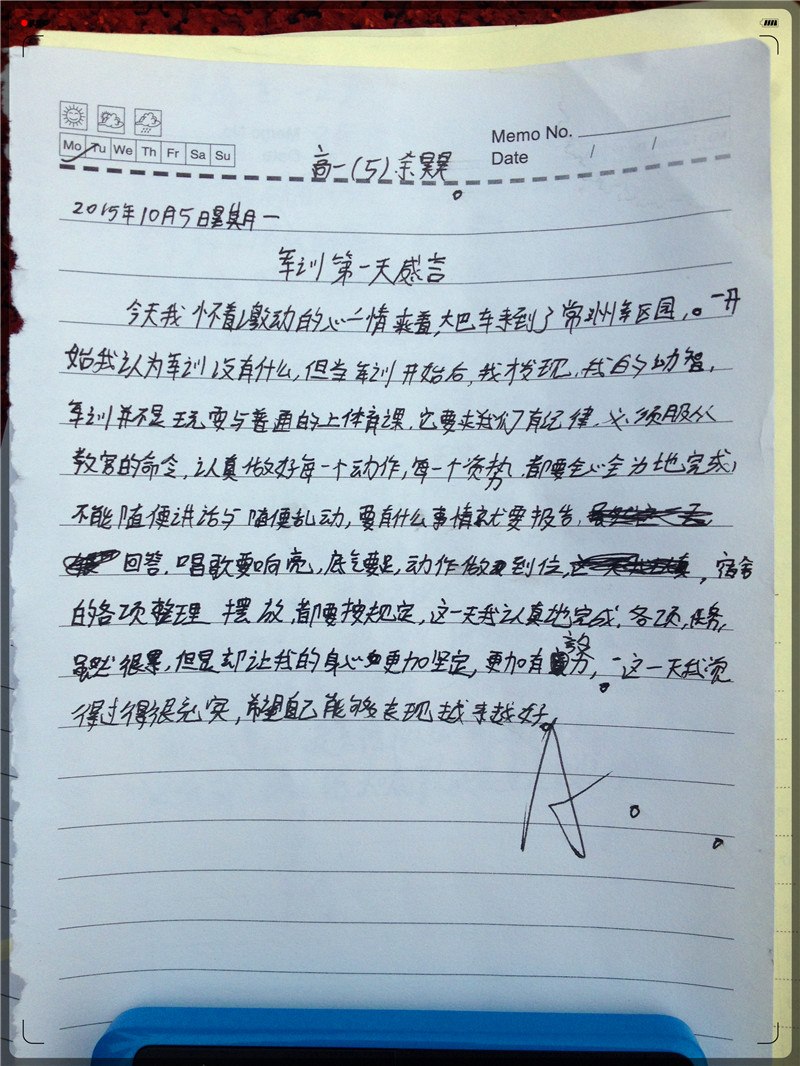 Memo No.
Mo Tu We Th Fr Sa Su
Date / /
高一(5).余昊昊
2015年10月5日星期一
军训第一天感言
今天我怀着激动的心情乘着大巴车来到了常州军区园。一开
始我认为军训没有什么,但当军训开始后,我才发现,我的幼智,
军训并不是玩耍与普通的上体育课,它要求我们有纪律,必须服从
教官的命令,认真做好每一个动作,每一个姿势,都要全心全力地完成,
不能随便讲话与随便乱动,要有什么事情就要报告,
回答,唱歌要响亮,底气要足,动作做到位,宿舍
的各项整理摆放,都要按规定,这一天我认真地完成,各项,任务,
虽然很累,但是却让我的身心更加坚定,更加有毅力,这一天我觉
得过得很充实,希望自己能够表现越来越好。
A